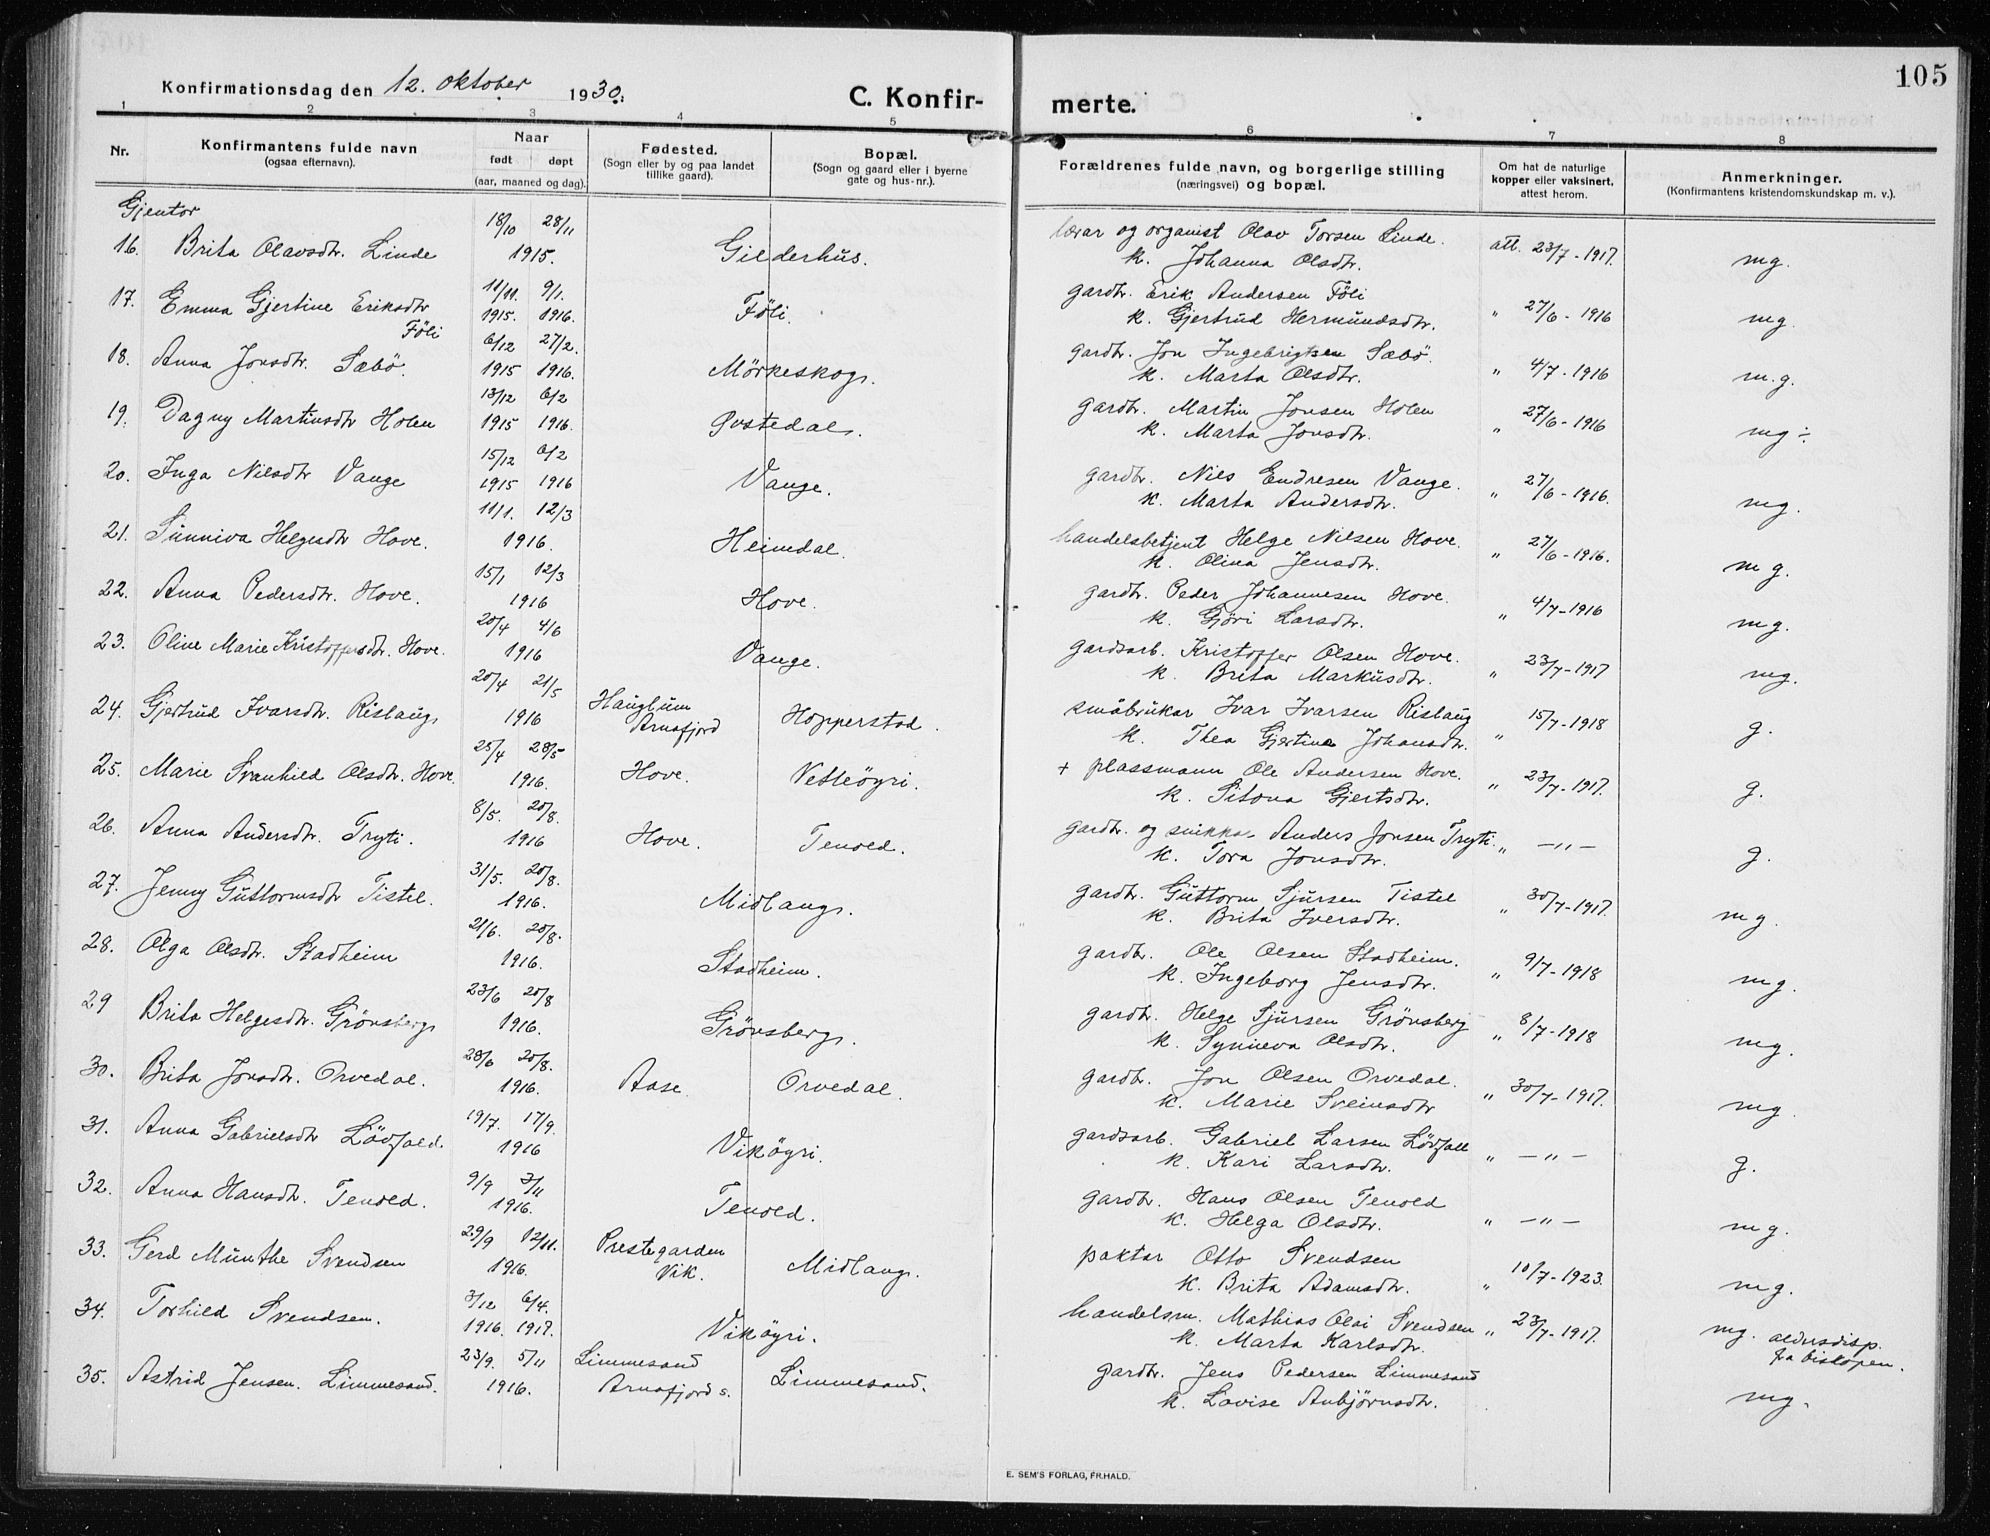 105
Konfirmationsdag den 12. oktober 1930.
C. Konfir- merte.
1 2 3 4 5 6 7 8
Nr.
Konfirmantens fulde navn
(ogsaa efternavn).
Naar
født døpt
(aar, maaned og dag).
Fødested.
(Sogn eller by og paa landet
tillike gaard).
Bopæl.
(Sogn og gaard eller i byerne
gate og hus-nr.).
Forældrenes fulde navn, og borgerlige stilling
(næringsvei) og bopæl.
Om hat de naturlige
kopper eller vaksinert,
attest herom.
Anmerkninger.
(Konfirmantens kristendomskundskap m. v.).
Gjentor
16. Brita Olavsdtr. Linde 18/10 28/11 1915. Gilderhus. lærar og organist Olav Torsen Linde. att. 23/7-1917. mg.
k. Johanna Olsdtr.
17. Emma Gjertine Eriksdtr 11/11. 9/1. 1915. 1916. Föli. gardbr. Erik Andersen Föli " 27/6-1916 mg.
Föli k. Gjertrud Hermundsdtr.
18. Anna Jonsdtr. Sæbö. 6/12 27/2. 1915 1916. Mörkeskog. gardbr. Jon Ingebrigtsen Sæbö. " 4/7-1916 m.g.
k. Marta Olsdtr.
19. Dagny Martinsdtr Holen 13/12 6/2 1915 1916. Ovstedal. gardbr. Martin Jonsen Holen " 27/6-1916 mg ÷.
k. Marta Jonsdtr.
20. Inga Nilsdtr Vange 15/12 6/2 1915 1916 Vange. gardbr. Nils Endresen Vange. " 27/6-1916. mg.
k. Marta Andersdtr.
21. Sunniva Helgesdtr Hove. 11/1. 12/3 1916. Heimdal. handelsbetjent Helge Nilsen Hove. " 27/6-1916. mg.
k. Olina Jensdtr.
22. Anna Pedersdtr. Hove. 15/1 12/3 1916 Hove. gardbr. Peder Johannesen Hove. " 4/7-1916 mg.
k. Gjöri Larsdtr.
23. Oline Marie Kristoffersdtr. Hove. 20/4 4/6 1916 Vange. gardsarb. Kristoffer Olsen Hove. " 23/7-1917 mg.
k. Brita Markusdtr.
24. Gjertrud Ivarsdtr. Rislaug 20/4 21/5 1916 Hauglum Arnafjord Hopperstad. småbrukar Ivar Ivarsen Rislaug " 15/7-1918 g.
k. Thea Gjertine Johansdtr.
25. Marie Svanhild Olsdtr. Hove. 25/4 28/5 1916. Hove. Vetleöyri. + plassmann Ole Andersen Hove. " 23/7-1917. g.
k. Sitona Gjertsdtr.
26. Anna Andersdtr. Tryti. 8/5. 20/8. 1916 Hove. Tenold. gardbr. og snikkar Anders Jonsen Tryti. " —"— g.
k. Tora Jonsdtr.
27. Jenny Guttormsdtr Tistel. 31/5. 20/8. 1916. Midlang. gardbr. Guttorm Sjursen Tistel " 30/7-1917. mg.
k. Brita Iversdtr.
28. Olga Olsdtr. Stadheim 21/6. 20/8. 1916. Stadheim. gardbr. Ole Olsen Stadheim. " 9/7-1918 mg.
k. Ingeborg Jensdtr.
29 Brita Helgesdtr. Grönsberg 23/6 20/8 1916. Grönsberg. gardbr. Helge Sjursen Grönsberg " 8/7-1918 mg.
k. Synneva Olsdtr.
30. Brita Jonsdtr. Orvedal. 28/6 20/8. 1916. Aase. Orvedal. gardbr. Jon Olsen Orvedal. " 30/7-1917. mg.
k. Marie Sveinsdtr
31. Anna Gabrielsdtr Lödfald. 19/7. 17/9. 1916 Viköyri. gardsarb. Gabriel Larsen Lödfall " —"— g.
k. Kari Larsdtr.
32. Anna Hansdtr. Tenold. 9/9 3/11 1916. Tenold. gardbr. Hans Olsen Tenold " —"— mg.
k. Helga Olsdtr.
33. Gerd Munthe Svendsen 29/9 12/11. 1916. Prestegarden Vik. Midlang. paktar Otto Svendsen " 10/7-1923. mg.
k. Brita Adamsdtr.
34. Torhild Svendsen. 3/12 6/4. 1916. 1917. Viköyri. handelsm. Mathias Olai Svendsen " 23/7-1917. mg. aldersdisp.
k. Marta Karlsdtr. fra biskopen.
35. Astrid Jensen Limmesand. 23/9. 5/11 1916. Limmesand Arnafjord s. Limmesand. gardbr. Jens Pedersen Limmesand mg.
k. Lovise Anbjörnsdtr.
E. SEM'S FORLAG, FR.HALD.